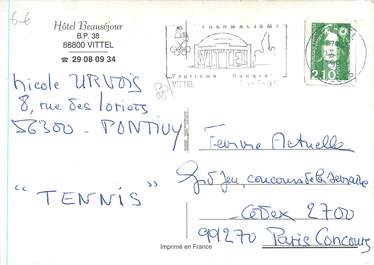 Hôtel Beauséjour
B.P. 38
88800 VITTEL
☎ 29 08 09 34
THERMALISME
Tourisme Congrès
VITTEL
2,10
Nicole URVOIS
8, rue des loriots
56300 - PONTIVY
"TENNIS"
Femme Actuelle
Jeu, concours de la semaine
Cédex 2700
99270 Paris Concours
Imprimé en France